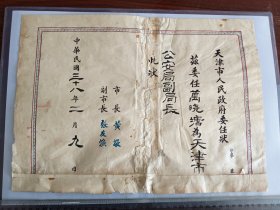 天津市人民政府委任状
兹委任萬曉塘為天津市
公安局副局長
此状
市長 黃敬
副市長 張友漁
中華民國三十八年二月九日